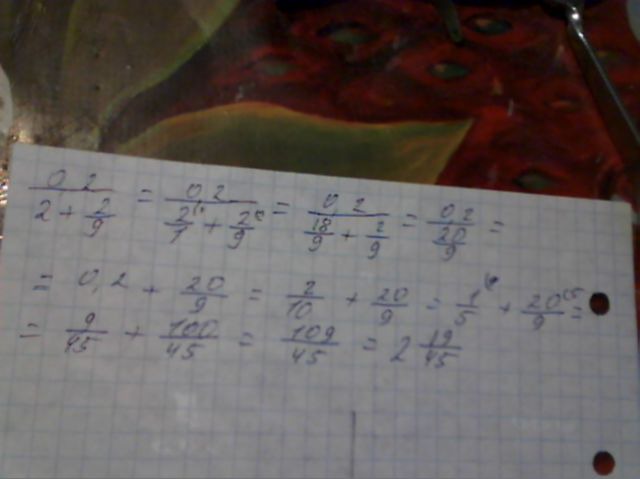 0,2/(2 + 2/9) = 0,2/(2/1 + 2/9) = 0,2/(18/9 + 2/9) = 0,2/(20/9) =
= 0,2 + 20/9 = 2/10 + 20/9 = 1/5 + 20/9 =
= 9/45 + 100/45 = 109/45 = 2 19/45